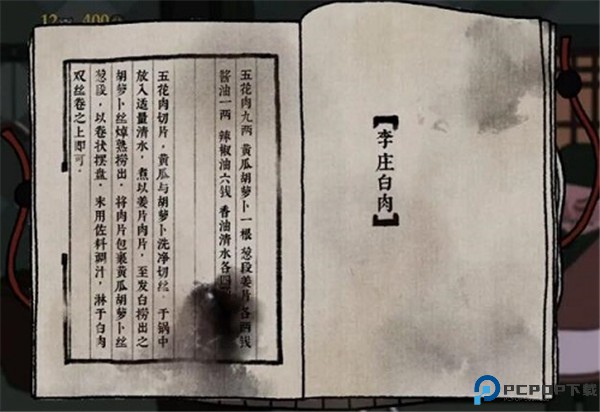 【李庄白肉】
五花肉九两 黄瓜胡萝卜一根 葱段姜片各两钱
酱油一两 辣椒油六钱 香油清水各四
五花肉切片，黄瓜与胡萝卜洗净切丝。于锅中
放入适量清水，煮以姜片肉片，至发白捞出之
胡萝卜丝焯熟捞出，将肉片包裹黄瓜胡萝卜丝
葱段，以卷状摆盘，末用佐料调汁，淋于白肉
双丝卷之上即可。
PCPOP下载